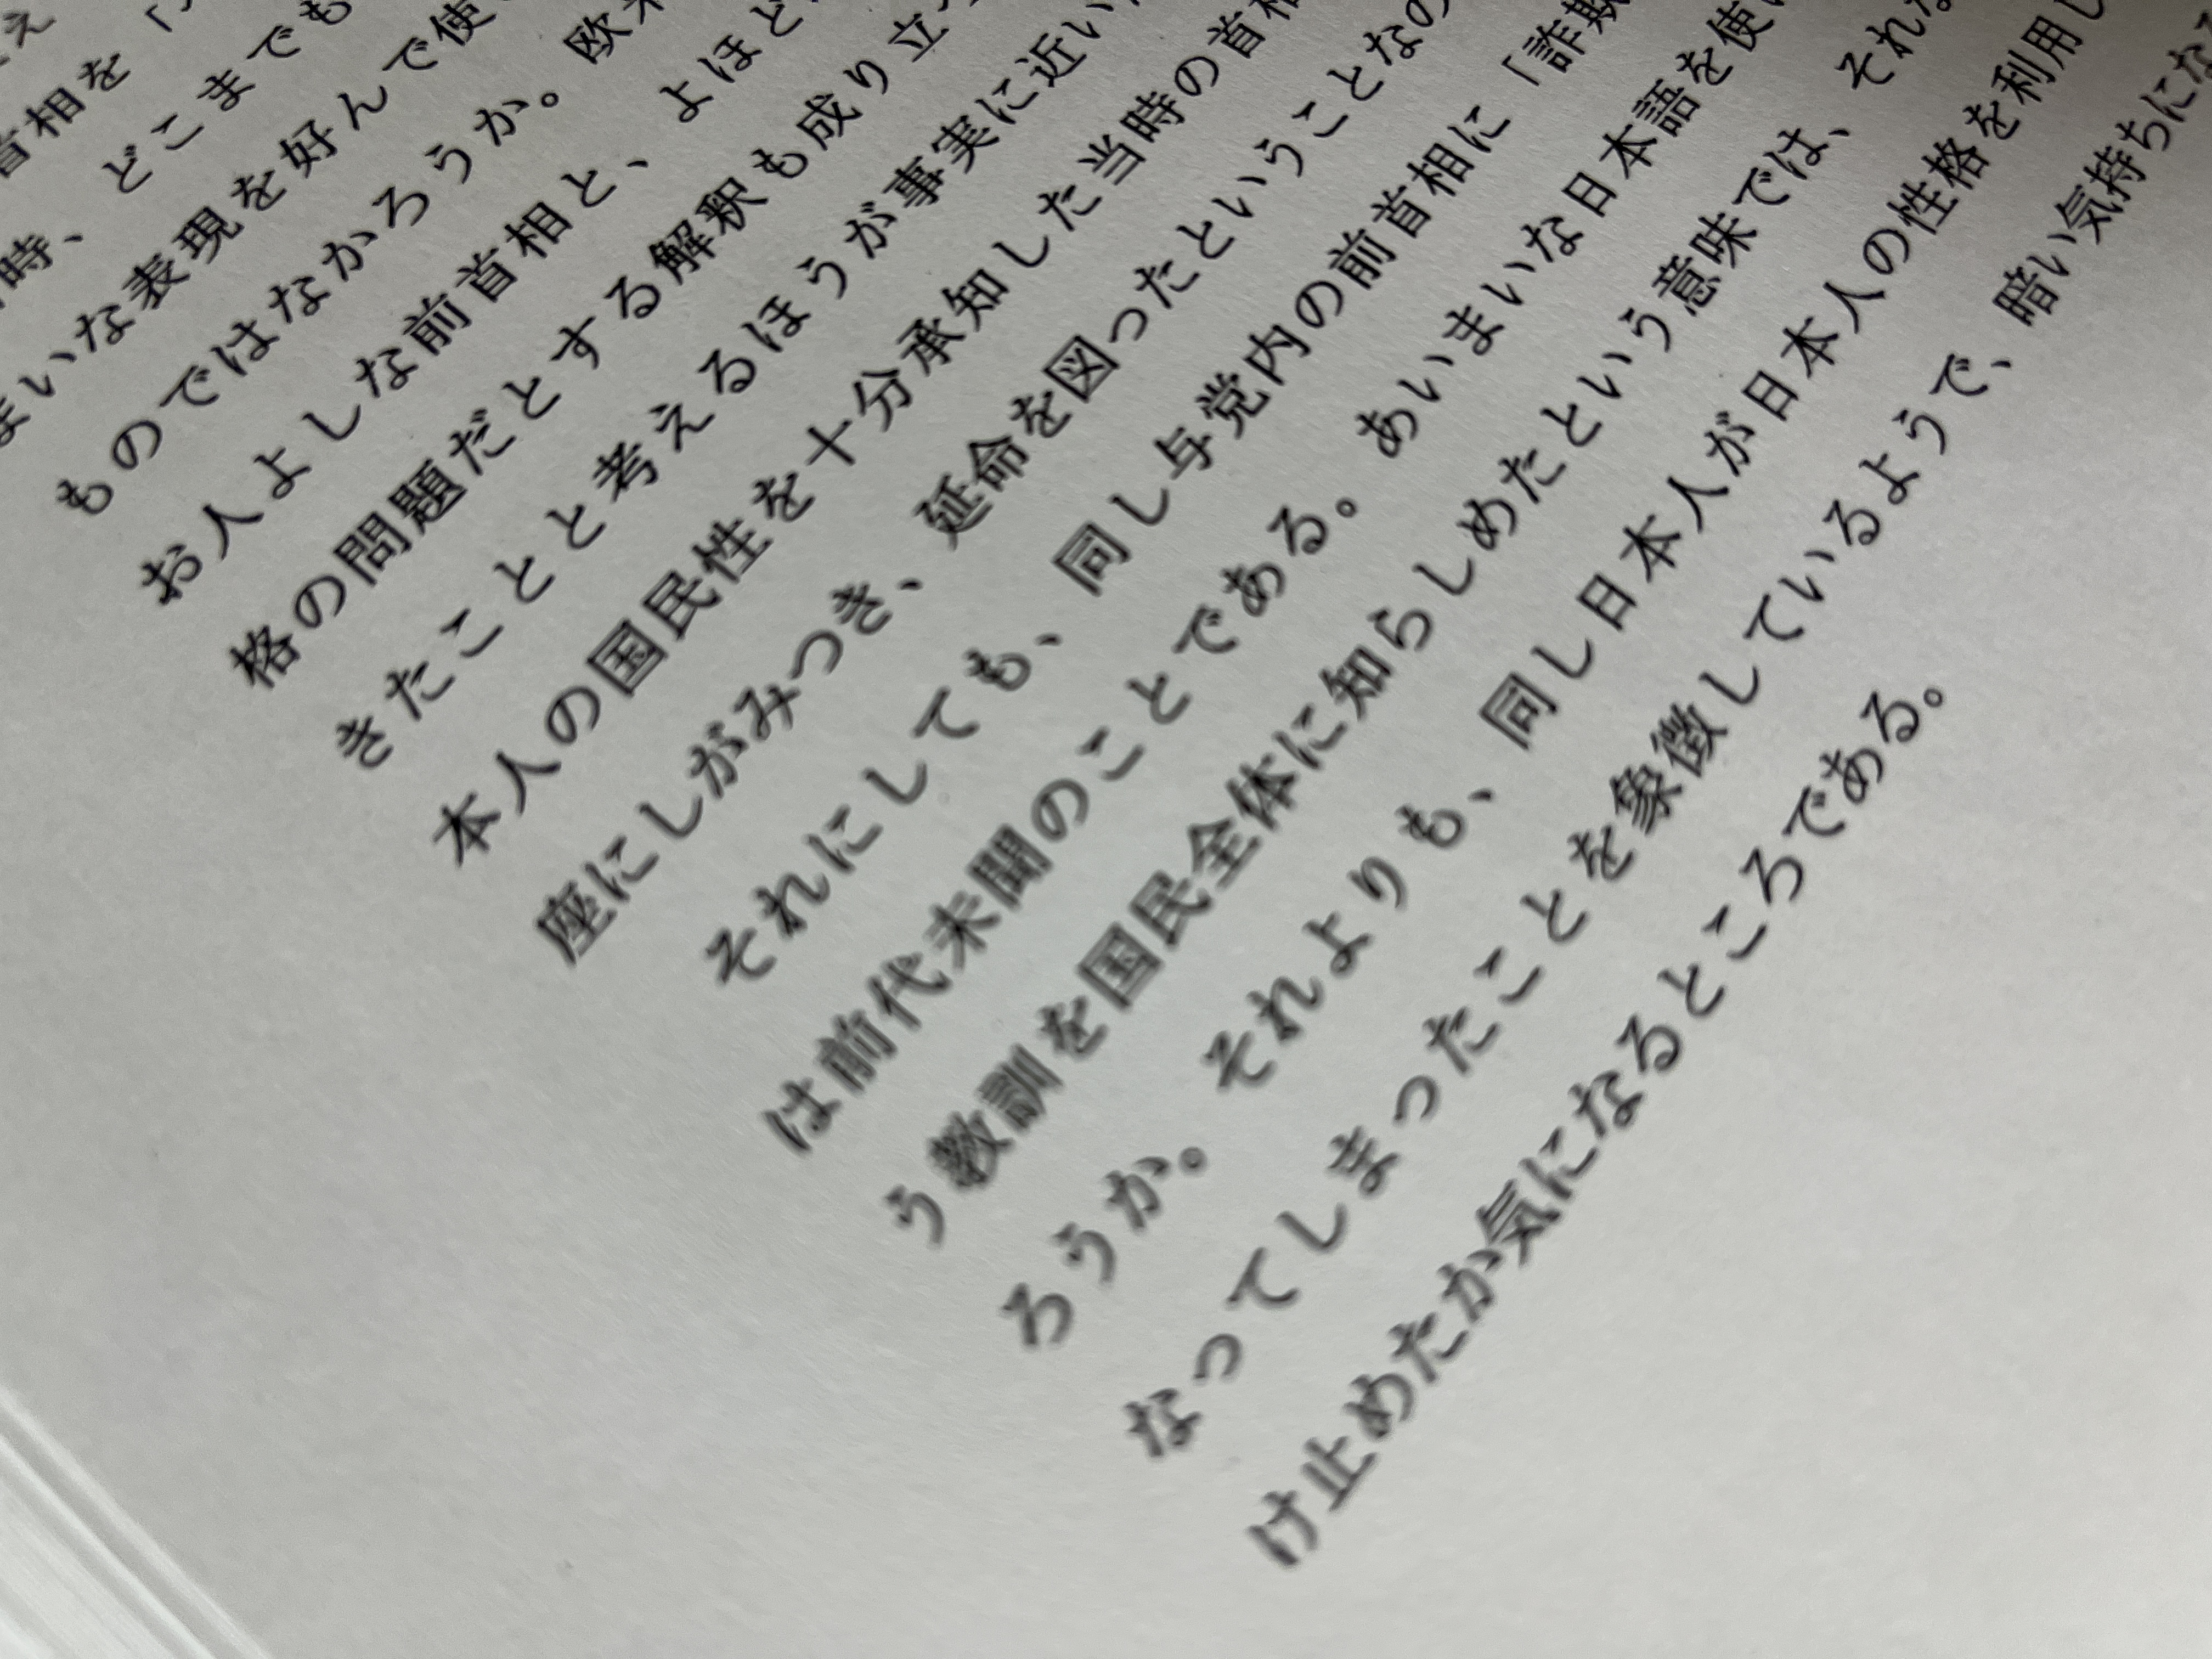 首相を「
時、どこまでも
まいな表現を好んで使
ものではなかろうか。欧米
お人よしな前首相と、よほど
格の問題だとする解釈も成り立
きたことと考えるほうが事実に近い
本人の国民性を十分承知した当時の首相
座にしがみつき、延命を図ったということなの
それにしても、同し与党内の前首相に「詐欺
は前代未聞のことである。あいまいな日本語を使
う教訓を国民全体に知らしめたという意味では、それな
ろうか。それよりも、同し日本人が日本人の性格を利用し
なってしまったことを象徴しているようで、暗い気持ちにな
け止めたか気になるところである。